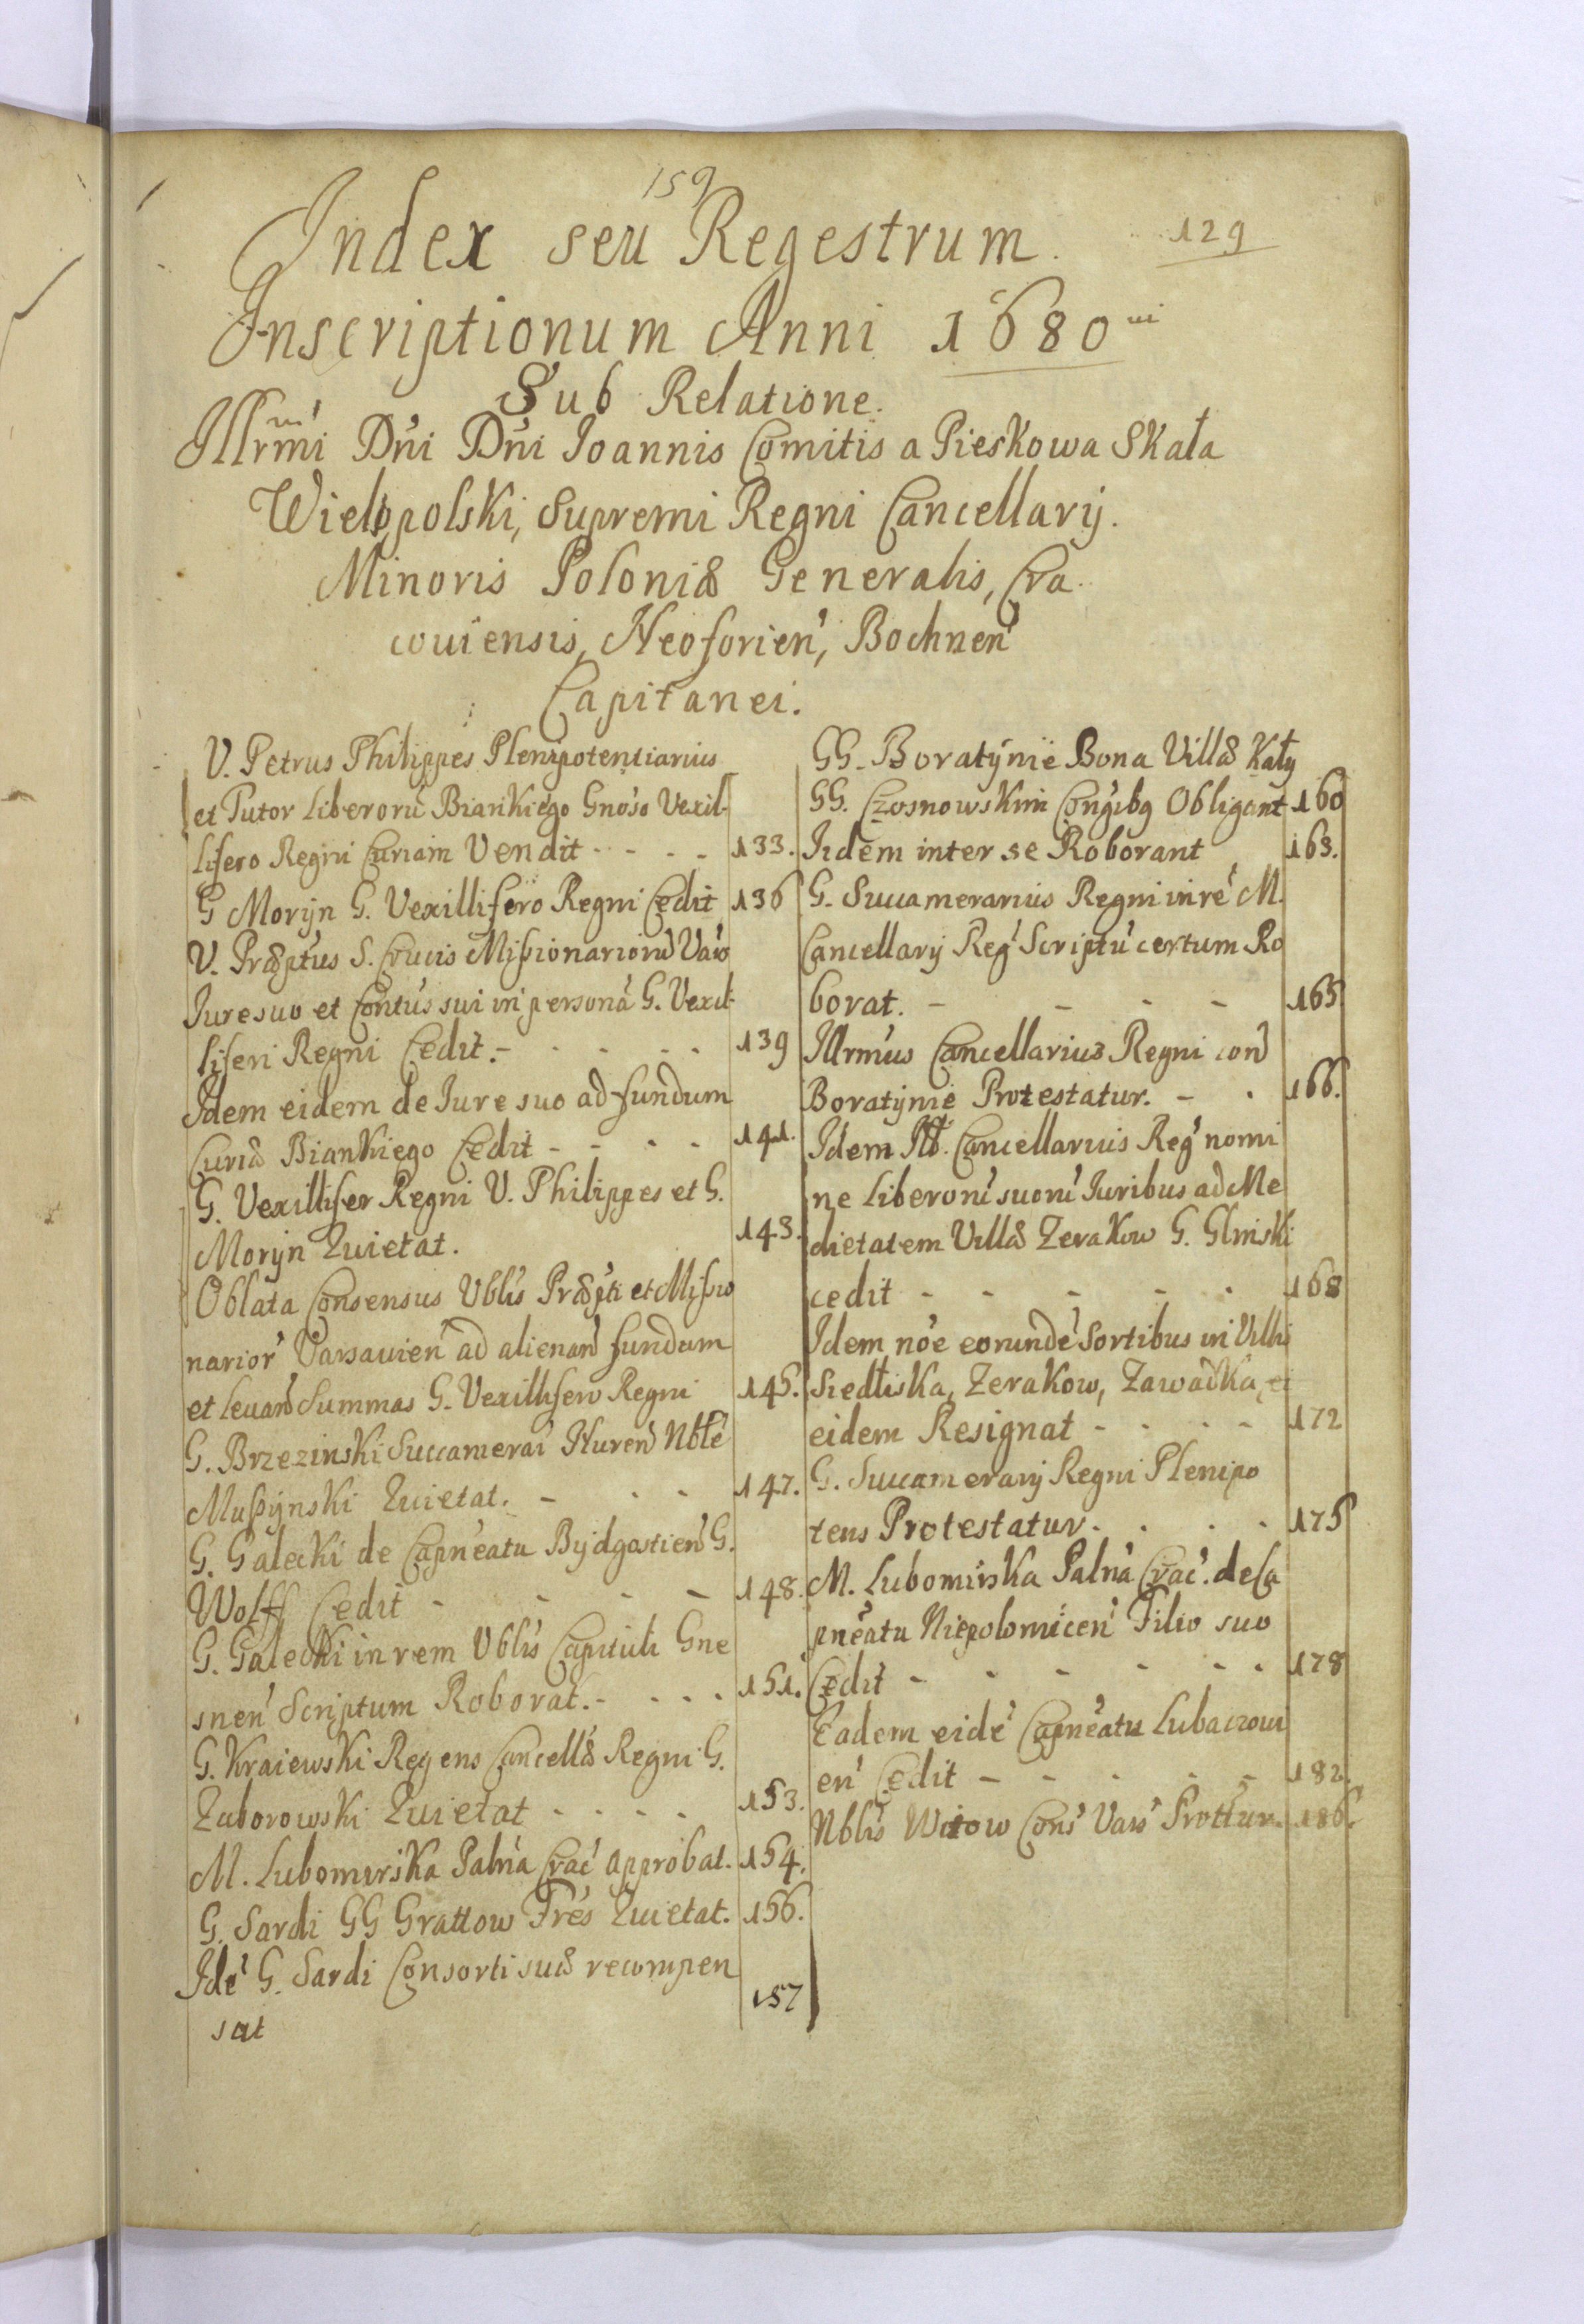 159
129
Index seu Regestrum.
Inscriptionum Anni 1680
Sub Relatione.
Illrmi Dni Dni Joannis Comitis a Pieskowa Skała
Wielopolski, Supremi Regni Cancellarij.
Minoris Poloniæ Generalis, Cra
couiensis, Neoforien, Bochnen
Capitanei.
V. Petrus Philippes Plenipotentiarius
et Tutor Liberorū Biankiego Gnoso Vexil-
lifero Regni Curiam Vendit - - - - 133.
G Morÿn G. Vexillifero Regni Cedit 136
V. Præptus S. Crucis Missionariorū Vars
Jure suo et Contus sui in persona G. Vexil-
liferi Regni Cedit. - - - - - 139
Idem eidem de Jure suo ad fundum
Curiæ Biankiego Cedit - - - - 141.
G. Vexillifer Regni V. Philippes et G.
Morÿn Quietat. 143.
Oblata Consensus Vblis Præpti et Missio
narior Varsauien ad alienand fundum
et levand Summas G. Vexillifero Regni 145.
G. Brzezinski Succamerar Nblē
Muszÿnski Quietat. - - - 147.
G. Galecki de Capneatu Bÿdgostien G.
Wolff Cedit - - - - 148.
G. Galecki in rem Vblis Capituli Gne
snen Scriptum Roborat. - - - - 151.
G. Kraiewski Regens Cancellæ Regni G.
Zaborowski Quietat - - - - 153.
M. Lubomirska Palna Crac approbat. 154.
G. Sardi GG Grattow Frēs Quietat. 156.
Idē G. Sardi Consorti suæ recompen
sat 157
GG. Boratÿnie Bona Villæ Kąty
GG. Czosnowskim Congibq Obligant 160
Iidem inter se Roborant 163.
G. Succamerarius Regni in rē M.
Cancellarij Reg Scriptū certum Ro
borat. - - - - 165
Illrmus Cancellarius Regni con
Boratÿnie Protestatur. - - 166.
Idem Cancellarius Reg nomi
ne Liberorū suorū Juribus ad Me
dietatem Villæ Zerakow G. Glinski
cedit - - - - - 168
Idem noe eorundē Sortibus in Villis
Siedliska, Zerakow, Zawadka, et
eidem Resignat - - - - 172
G. Succamerarij Regni Plenipo
tens Protestatur. - - - 175
M. Lubomirska Palna Crac. de Ca
pneatu Niepolomicen Filio suo
Cedit - - - - - - 178
Eadem eidē Capneatu Lubaczoui
en Cedit - - - - - 182.
Nblis Witow Cons Vars Prottur. 186.